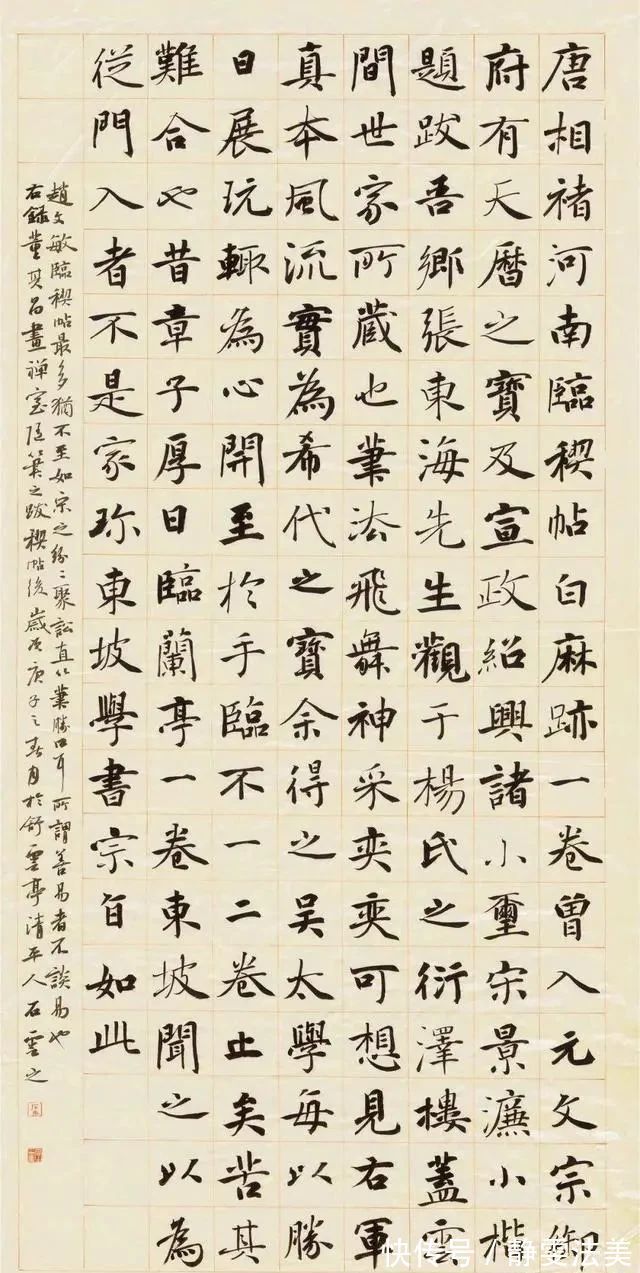 唐相褚河南臨稧帖白麻跡一卷曾入元文宗御
府有天曆之寶及宣政紹興諸小璽宋景濂小楷
題跋吾鄉張東海先生觀于楊氏之衍澤樓蓋雲
間世家所藏也筆法飛舞神采奕奕可想見右軍
真本風流實為希代之寶余得之吴太學每以勝
日展玩輒為心開至於手臨不一二卷止矣苦其
難合也昔章子厚日臨蘭亭一卷東坡聞之以為
從門入者不是家珎東坡學書宗旨如此
趙文敏臨稧帖最多猶不至如宋之紛々聚訟直以筆勝口耳所謂善易者不談易也
右錄董其昌畫禪室隨筆之跋稧帖後歲次庚子之春月於舒雲亭清平人石雲之
快传号/静雯法美